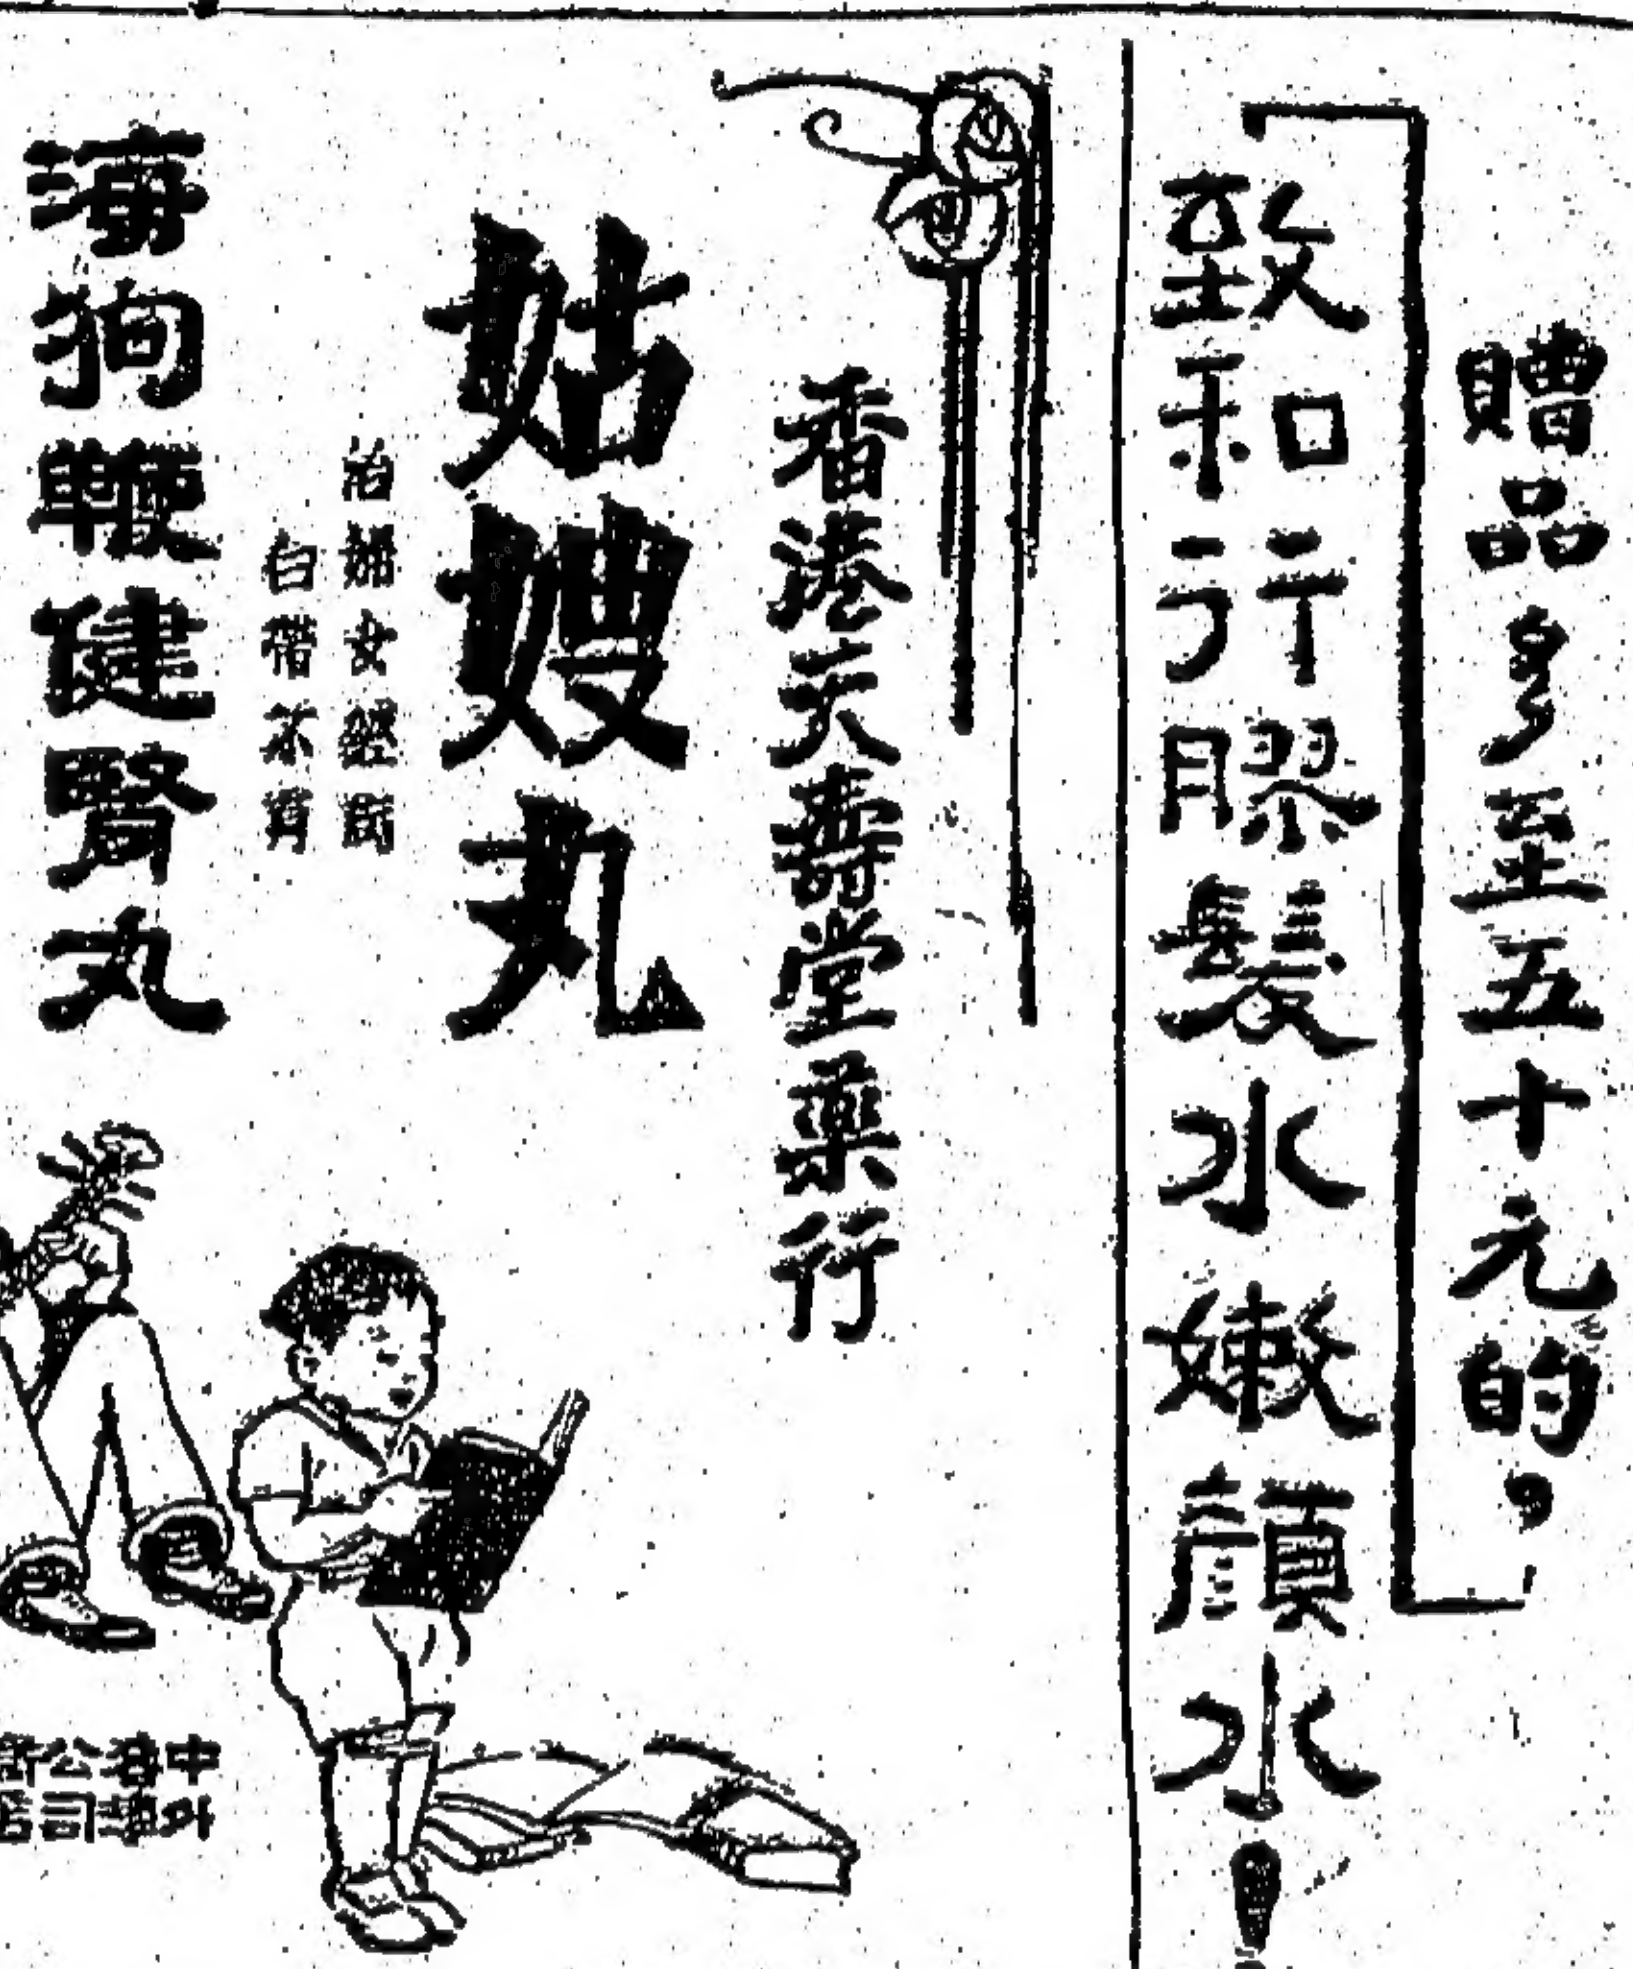 贈品多至五十元的，
致和行膠髮水嫩顏水！
香港天壽堂藥行
姑嫂丸
治婦女經期
白帶不育
海狗鞭健腎丸
中
外
公
司